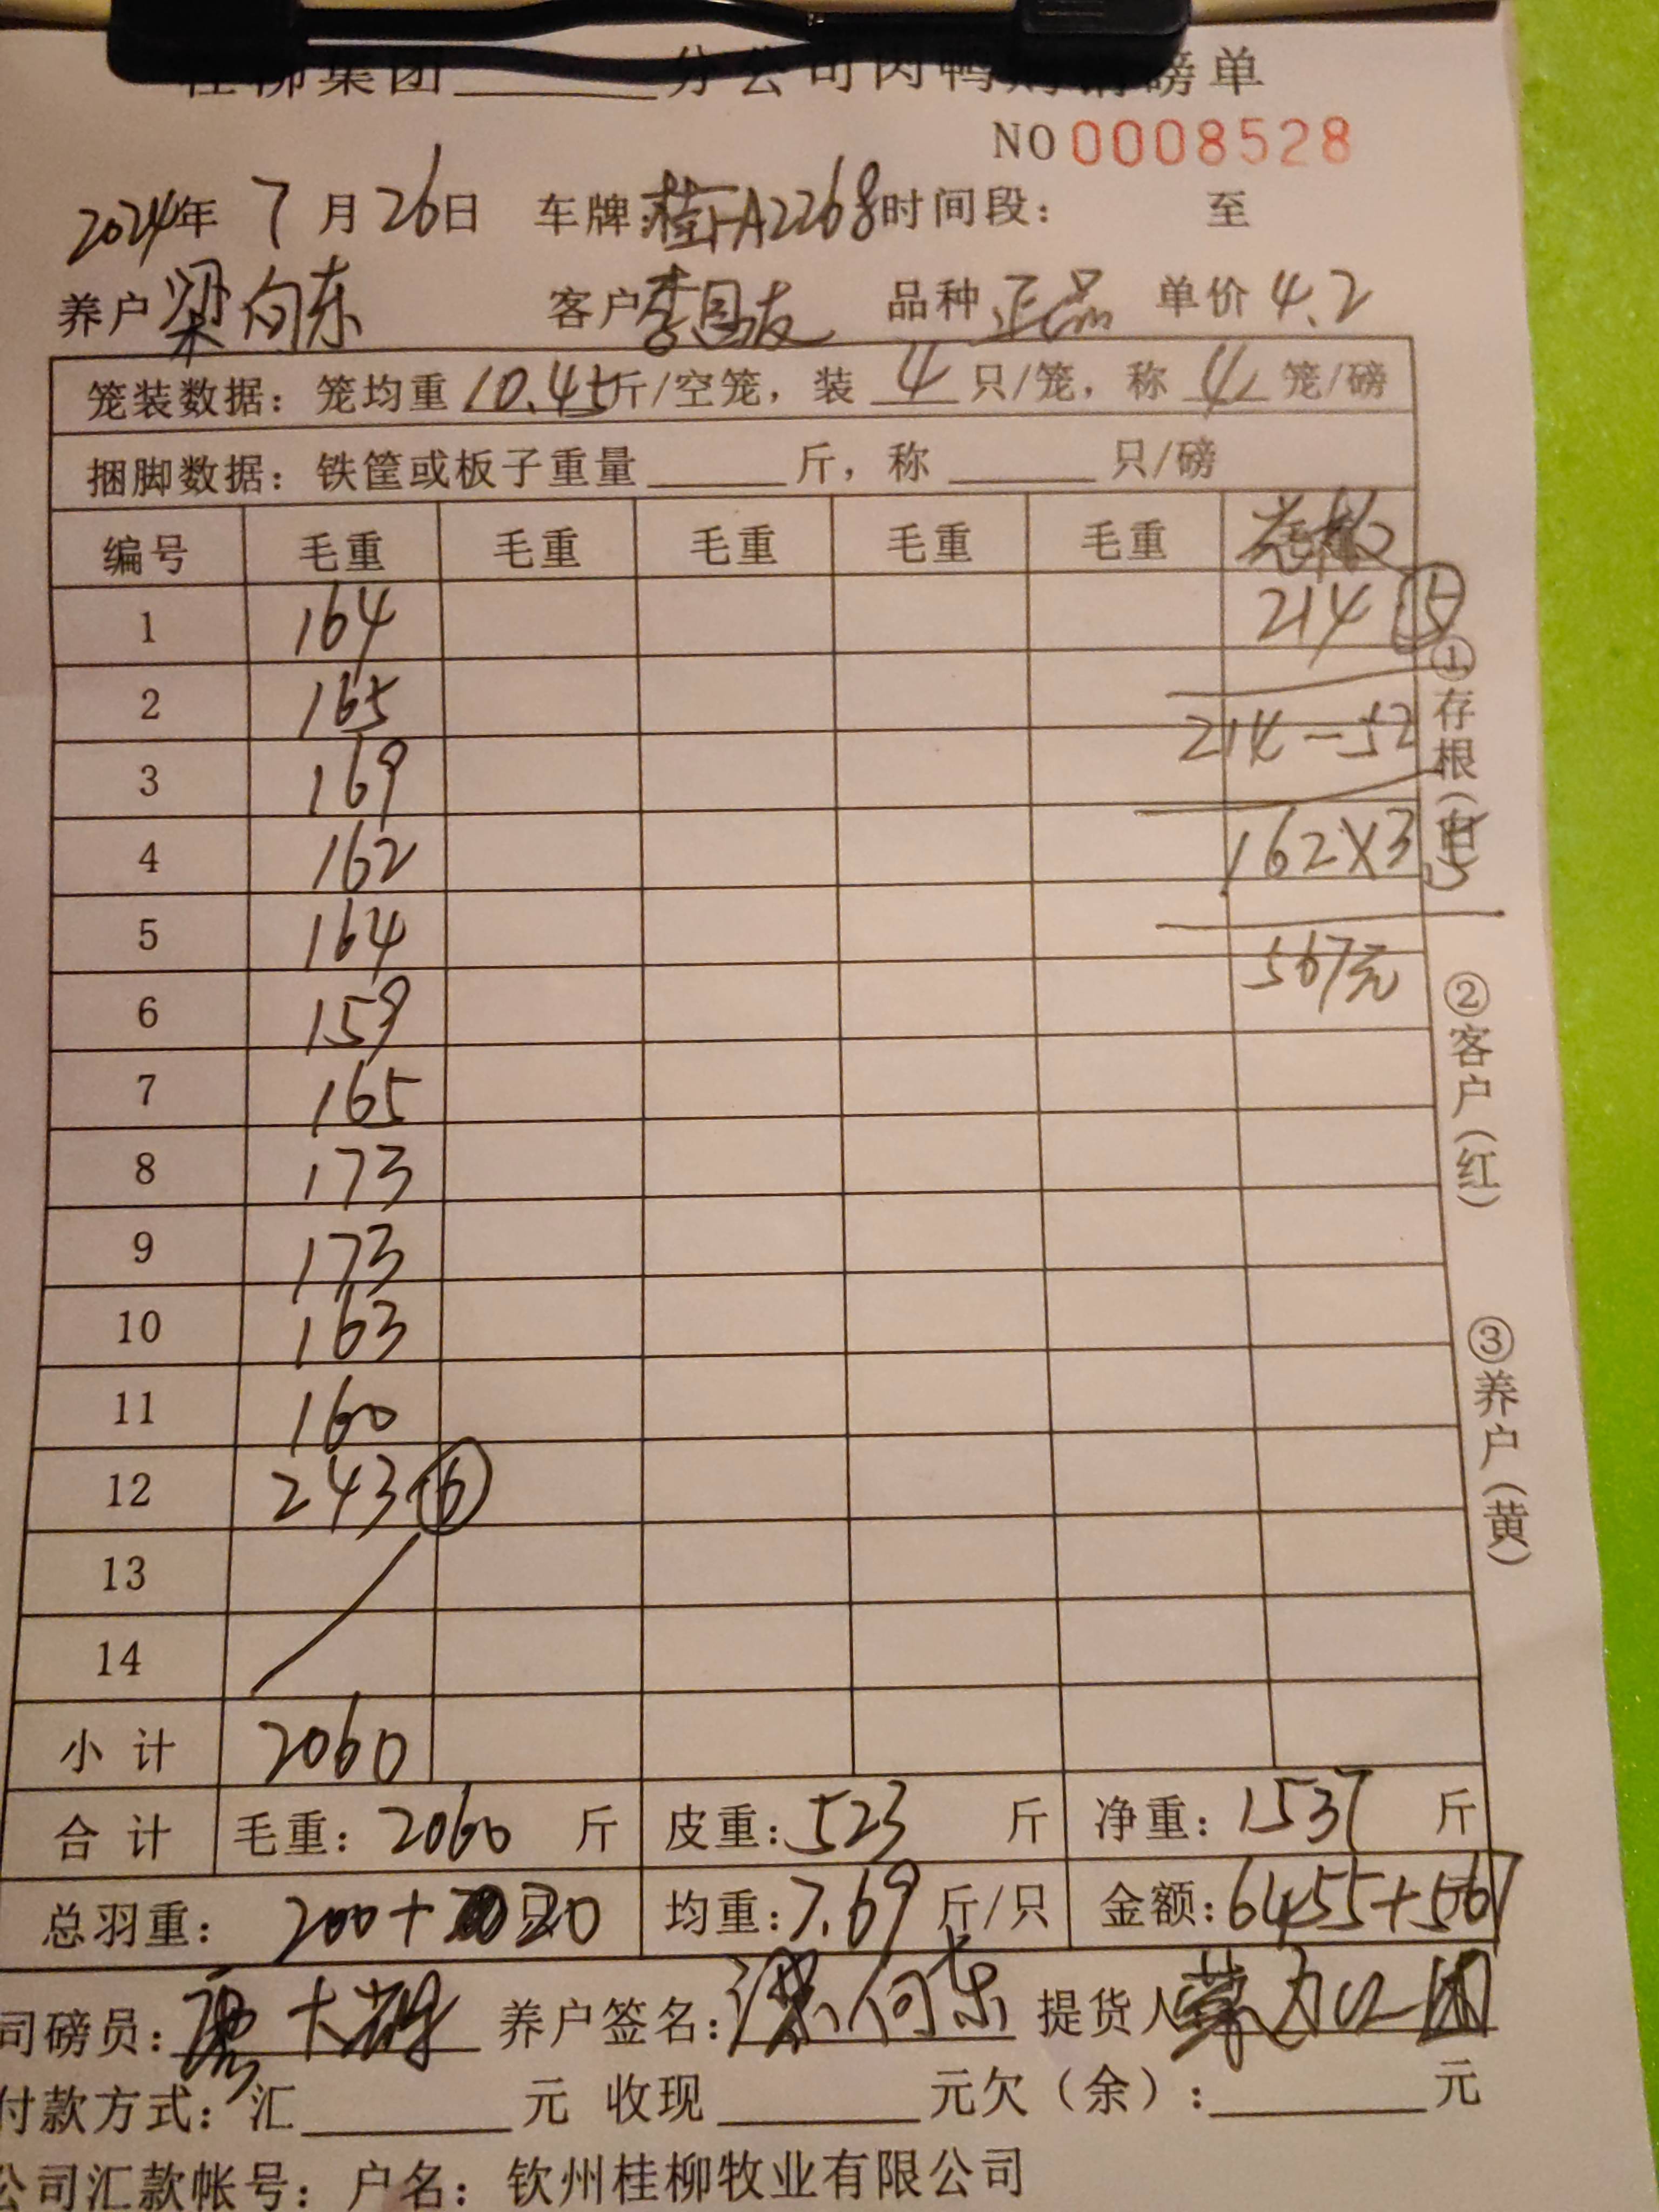 桂柳集团______分公司肉鸭购销磅单
NO 0008528
2024年 7月26日 车牌:桂A2268 时间段: 至
养户 梁向东 客户 李国友 品种 正品 单价 4.2
笼装数据：笼均重 10.45 斤/空笼，装 4 只/笼，称 4 笼/磅
捆脚数据：铁筐或板子重量______斤，称______只/磅
编号 毛重 毛重 毛重 毛重 毛重
1 164 214 ⑤
2 165 214-52
3 169
4 162 162×3.5
5 164 567元
6 159
7 165
8 173
9 173
10 163
11 160
12 243 ⑥
13
14
小计 2060
合计 毛重：2060 斤 皮重：523 斤 净重：1537 斤
总羽重：200+20 只 均重：7.69 斤/只 金额：6455+567
司磅员： 养户签名：梁向东 提货人
付款方式：汇______元 收现______元欠（余）：______元
公司汇款帐号：户名：钦州桂柳牧业有限公司
①存根(白)
②客户(红)
③养户(黄)